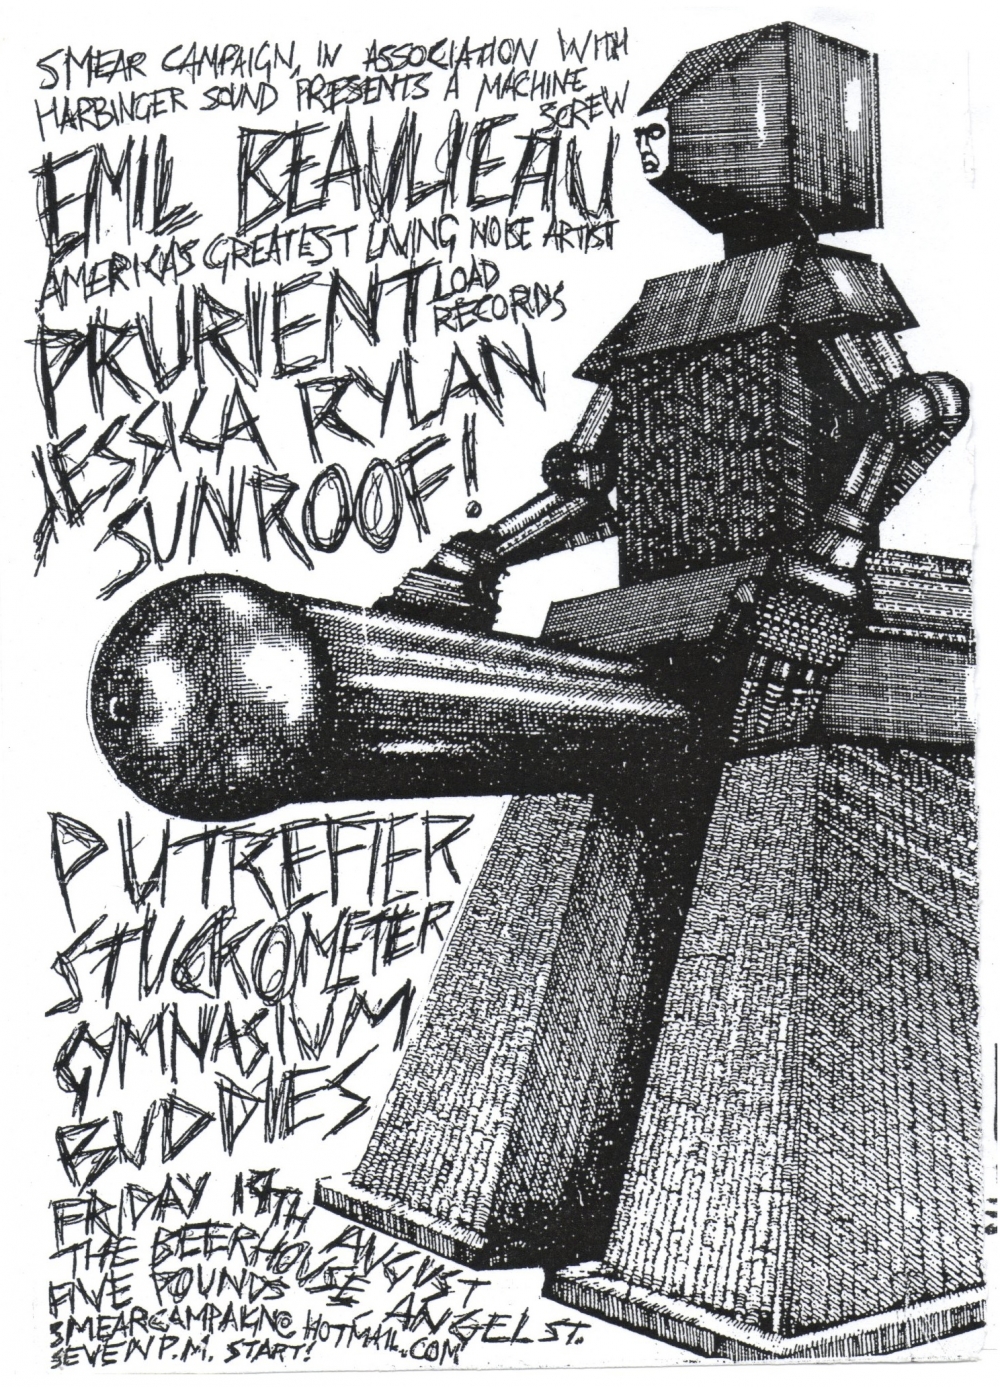 SMEAR CAMPAIGN, IN ASSOCIATION WITH
HARBINGER SOUND PRESENTS A MACHINE
SCREW
EMIL BEAULIEAU
AMERICA'S GREATEST LIVING NOISE ARTIST
PRURIENT LOAD
RECORDS
JESSICA RYLAN
SUNROOF!
PUTREFIER
STUCKOMETER
GYMNASIUM
BUDDIES
FRIDAY 19TH
AUGUST
THE BEERHOUSE
ANGEL ST.
FIVE POUNDS
SMEARCAMPAIGN@HOTMAIL.COM
SEVEN P.M. START!